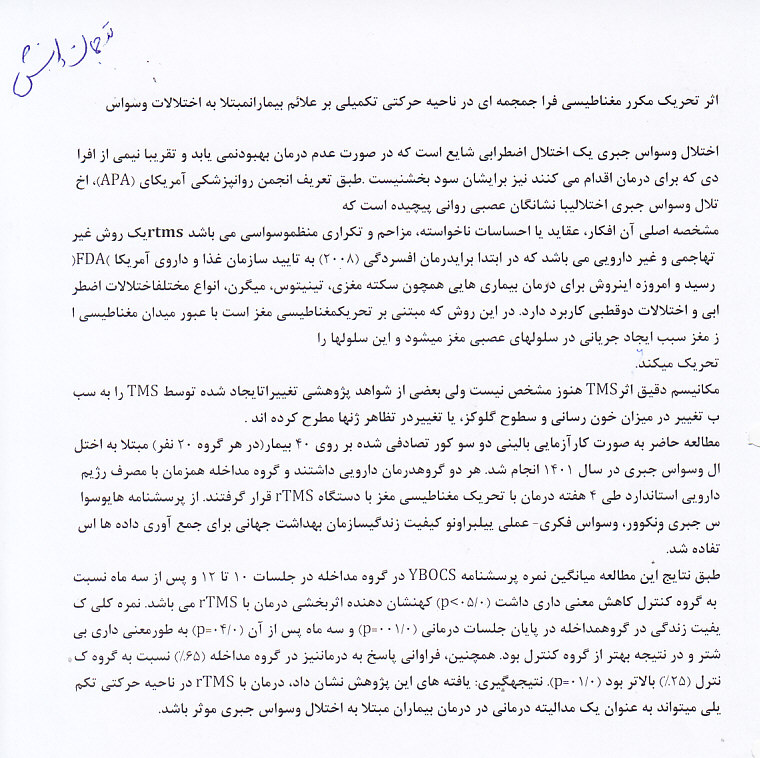 ترجمان دانش
اثر تحریک مکرر مغناطیسی فرا جمجمه ای در ناحیه حرکتی تکمیلی بر علائم بیمارانمبتلا به اختلالات وسواس
اختلال وسواس جبری یک اختلال اضطرابی شایع است که در صورت عدم درمان بهبودنمی یابد و تقریبا نیمی از افرا
دی که برای درمان اقدام می کنند نیز برایشان سود بخشنیست .طبق تعریف انجمن روانپزشکی آمریکای (APA)، اخ
تلال وسواس جبری اختلالیبا نشانگان عصبی روانی پیچیده است که
مشخصه اصلی آن افکار، عقاید یا احساسات ناخواسته، مزاحم و تکراری منظموسواسی می باشد rtmsیک روش غیر
تهاجمی و غیر دارویی می باشد که در ابتدا برایدرمان افسردگی (۲۰۰۸) به تایید سازمان غذا و داروی آمریکا )FDA(
رسید و امروزه اینروش برای درمان بیماری هایی همچون سکته مغزی، تینیتوس، میگرن، انواع مختلفاختلالات اضطر
ابی و اختلالات دوقطبی کاربرد دارد. در این روش که مبتنی بر تحریکمغناطیسی مغز است با عبور میدان مغناطیسی ا
ز مغز سبب ایجاد جریانی در سلولهای عصبی مغز میشود و این سلولها را
تحریک میکند.
مکانیسم دقیق اثرTMS هنوز مشخص نیست ولی بعضی از شواهد پژوهشی تغییراتایجاد شده توسط TMS را به سب
ب تغییر در میزان خون رسانی و سطوح گلوکز، یا تغییردر تظاهر ژنها مطرح کرده اند .
مطالعه حاضر به صورت کارآزمایی بالینی دو سو کور تصادفی شده بر روی ۴۰ بیمار(در هر گروه ۲۰ نفر) مبتلا به اختل
ال وسواس جبری در سال ۱۴۰۱ انجام شد. هر دو گروهدرمان دارویی داشتند و گروه مداخله همزمان با مصرف رژیم
دارویی استاندارد طی ۴ هفته درمان با تحریک مغناطیسی مغز با دستگاه rTMS قرار گرفتند. از پرسشنامه هایوسوا
س جبری ونکوور، وسواس فکری- عملی ییلبراونو کیفیت زندگیسازمان بهداشت جهانی برای جمع آوری داده ها اس
تفاده شد.
طبق نتایج این مطالعه میانگین نمره پرسشنامه YBOCS در گروه مداخله در جلسات ۱۰ تا ۱۲ و پس از سه ماه نسبت
به گروه کنترل کاهش معنی داری داشت (p<۰۵/۰) کهنشان دهنده اثربخشی درمان با rTMS می باشد. نمره کلی ک
یفیت زندگی در گروهمداخله در پایان جلسات درمانی (p=۰۰۱/۰) و سه ماه پس از آن (p=۰۴/۰) به طورمعنی داری بی
شتر و در نتیجه بهتر از گروه کنترل بود. همچنین، فراوانی پاسخ به درماننیز در گروه مداخله (۶۵٪) نسبت به گروه ک
نترل (۲۵٪) بالاتر بود (p=۰۱/۰). نتیجهگیری: یافته های این پژوهش نشان داد، درمان با rTMS در ناحیه حرکتی تکم
یلی میتواند به عنوان یک مدالیته درمانی در درمان بیماران مبتلا به اختلال وسواس جبری موثر باشد.